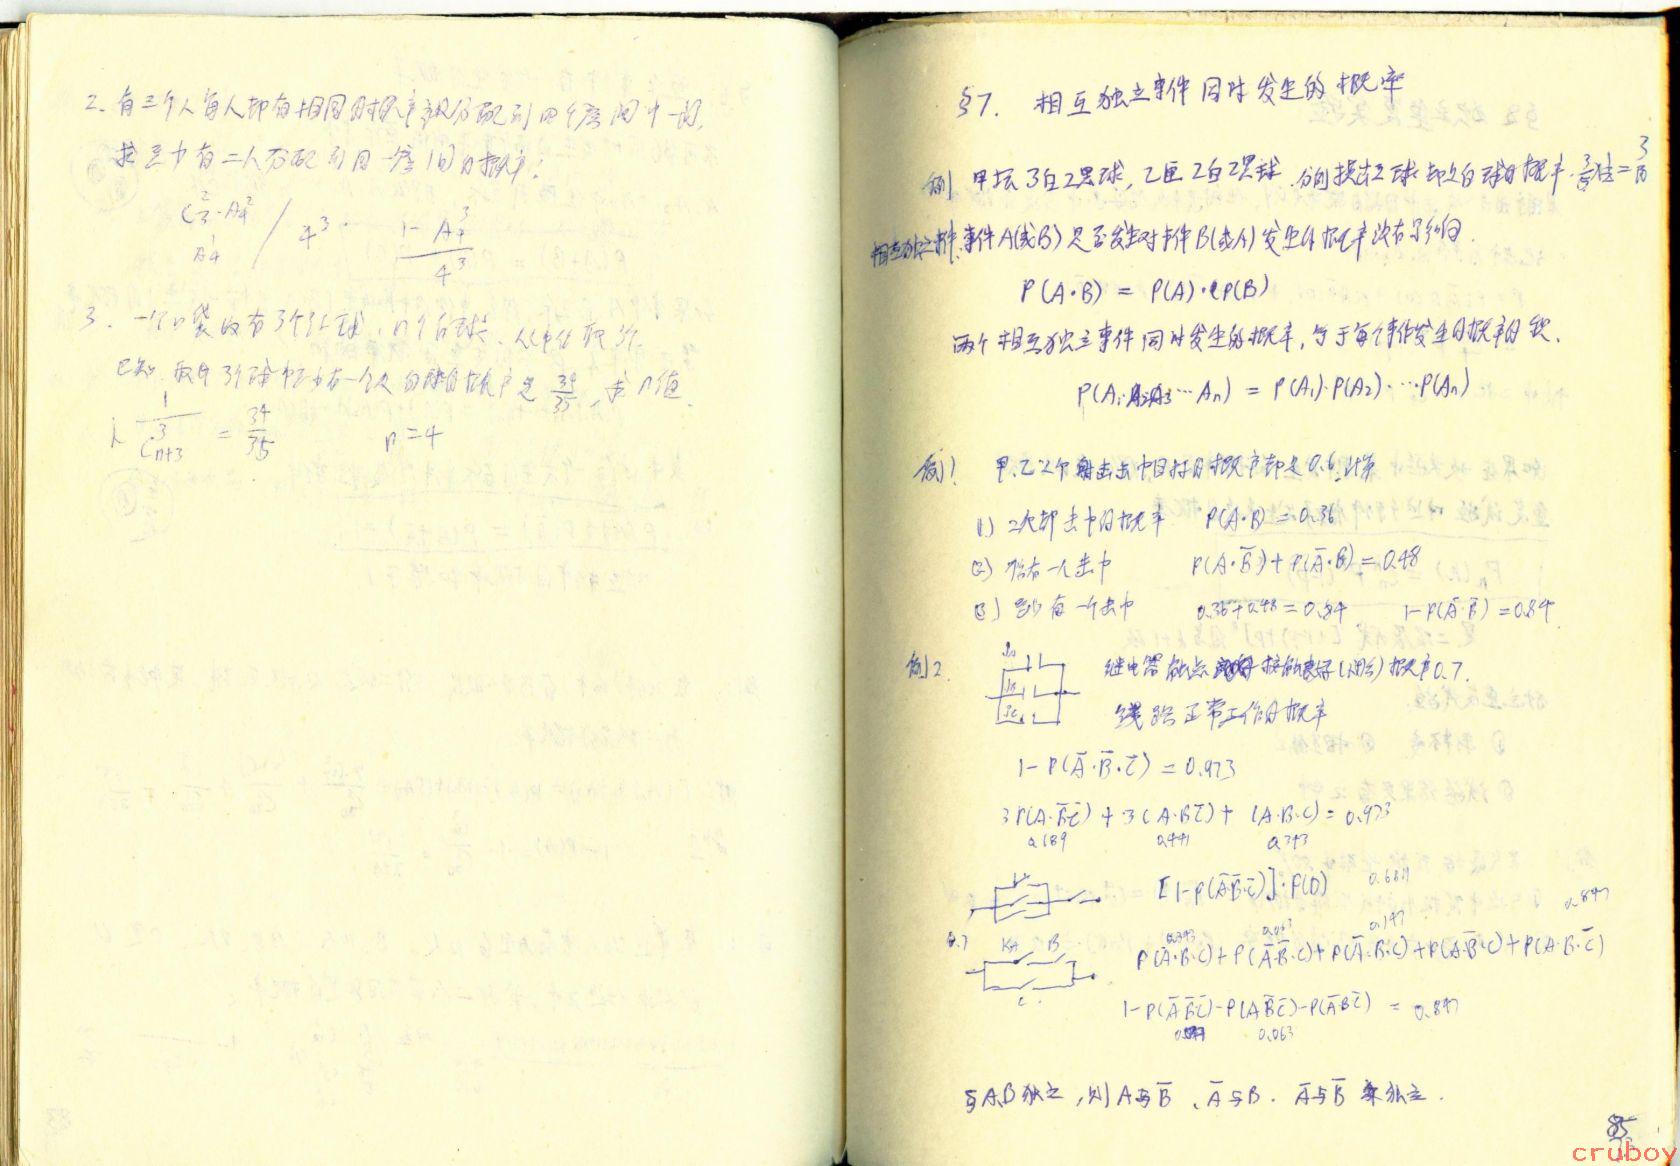 2. 有三个人每人都有相同的概率被分配到四个房间中一间,
求至少有二人分配到同一房间的概率?
C²₃·A²₄ / A¹₄ / 4³ 1-A³₄ / 4³
3. 一个口袋内有3个红球,n个白球,从中任取3个,
已知取出3个球中至少有一个是白球的概率是 34/35,求n值.
1- 1/C³ₙ₊₃ = 34/35 n=4
§7. 相互独立事件同时发生的概率
例 甲坛3白2黑球,乙匣2白2黑球.分别摸出 球都是白球的概率. = 3/10
相互独立事件:事件A(或B)是否发生对事件B(或A)发生的概率没有影响.
P(A·B) = P(A)·P(B)
两个相互独立事件同时发生的概率,等于每个事件发生的概率的积.
P(A₁·A₂·A₃…Aₙ) = P(A₁)·P(A₂)·…P(Aₙ)
例1 甲.乙2个射击击中目标的概率都是0.6,计算
(1) 2次都击中的概率 P(A·B)=0.36
(2) 恰有一人击中 P(A·B̄)+P(Ā·B)=0.48
(3) 至少有一个击中 0.36+0.48=0.84 1-P(Ā·B̄)=0.84
例2. 继电器触点 接触良好(闭合)概率0.7.
线路正常工作的概率
1-P(Ā·B̄·C̄)=0.973
3P(A·B̄C̄)+3(A·BC̄)+(A·B·C)=0.973
0.189 0.441 0.343
[1-P(ĀB̄C̄)]·P(D) 0.6811
0.7 KA B 0.343 0.063 0.147 0.847
P(A·B·C)+P(ĀB̄·C)+P(Ā·B·C)+P(A·B̄·C)+P(A·B·C̄)
1-P(ĀB̄C̄)-P(AB̄C̄)-P(ĀBC̄) = 0.847
0.063
若A.B独立,则A与B̄、Ā与B.Ā与B̄ 独立.
85
cruboy